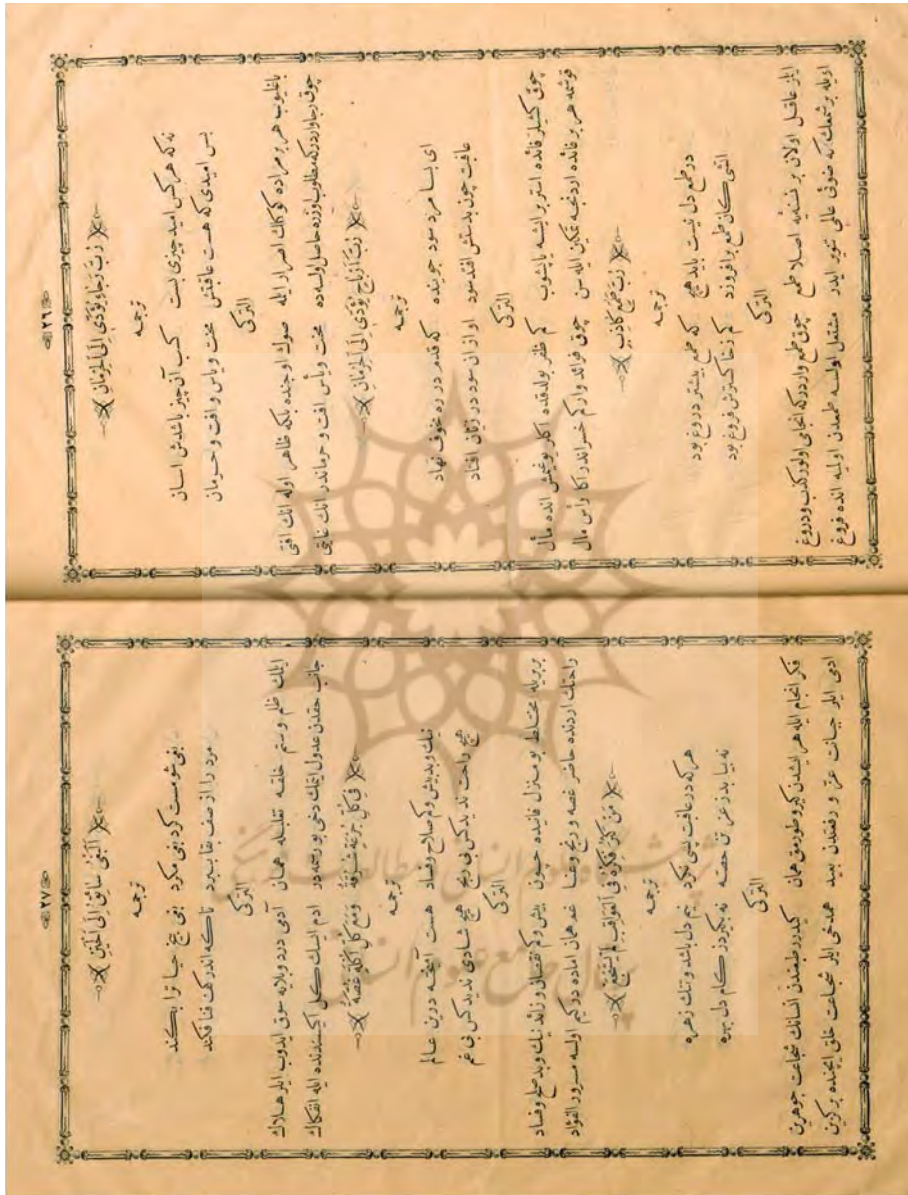 ٢٦
رُبَّ رَجَاءٍ يُؤَدِّي إِلَى الْحِرْمَانِ
ترجمه
نه كه هر كس اميد چيزى بست كسب آن چيز باشدش اسان
بس اميدى كه هست عاقبتش محنت و ياس و افت و حرمان
التركى
باغليوب هر بر مراده كوكلك اصرار ايله صوك اوجنده بلكه ظاهر اوله انك افتى
چوق رجا واردر كه مطلوب اوزره حاصل اولمه ده محنت و يأس افت و حرماندر انك غايتى
رُبَّ أَرْبَاحٍ يُؤَدِّي إِلَى الْخُسْرَانِ
ترجمه
اى بسا مرد سود جوينده كه قدم در ره مخوف نهاد
عاقبت چون بدستش افتد سود او از ان سود در زيان افتاد
التركى
چوق كشيلر فائده استر بر ايشه ياپشوب كم ظفر بولدقده اكلر بوغمش انده مأل
قوشمه هر بر فائده اردنجه غمكين ايله سن چوق فوائد وار كم خسراندر اكا رأس مال
رُبَّ طَمَعٍ كَاذِبٍ
ترجمه
در طمع دل نبست بايد هيچ كه طمع بيشتر دروغ بود
اتشى كان طمع برافروزد كم زخاكسترش فروغ بود
التركى
ايلز عاقل اولان بر نسنه يه اصلا طمع چوق طمع واردر كه انجامى اولور كذب و دروغ
اويله بر شمعك كه ضوئى عالمى تنوير ايدر مشتعل اولسه طمعدن اولميه انده فروغ
٢٧
اَلْبَغْيُ سَائِقٌ إِلَى الْحَيْنِ
ترجمه
بغى شومست كرد بغى مكرد بغى بيخ حيات را بكند
مرد را از صف بقا ببرد تا كه اندر كف فنا فكند
التركى
ايلمك ظلم و ستم خلقه تغلبله همان آدمى درد و بلايه سوق ايدوب ايلر هلاك
جانب حقدن عدول ايتمك دخى بو رتبه دور ادم ايسك كل اكيسندنده ايله انفكاك
فِي كُلِّ جُرْعَةٍ شَرْقَةٌ وَمَعَ كُلِّ أَكْلَةٍ غُصَّةٌ
ترجمه
نيك و بد بيش و كم صلاح و فساد هست آميخته درين عالم
هيچ راحت نديد كس بى رنج هيچ شادى نديد كس بى غم
التركى
بربريله مختلط بو منزل فانيده چون بيش و كم نقصان و زائد نيك و بد صلح و فساد
راحتك اردنده حاضر غصه و رنج و عنا غم همان اماده در كيم اولسه مسرور الفؤاد
مَنْ كَثُرَ فِكْرُهُ فِي الْعَوَاقِبِ لَمْ يَشْجُعْ
ترجمه
هر كه در عاقبت بسى نكرد بيم دل باشد و تنك زهره
نه بيابد ز عز تن حصه نه بكيرد ز كام دل بهره
التركى
فكر انجام ايله هر ايشدن كيرو طورمق همان كيدرر طبعندن انسانك شجاعت جوهرين
ادمى ايلر جبانت عز و رفعتدن بعيد همدمى ايلر شجاعت خلق ايچنده بر كزين